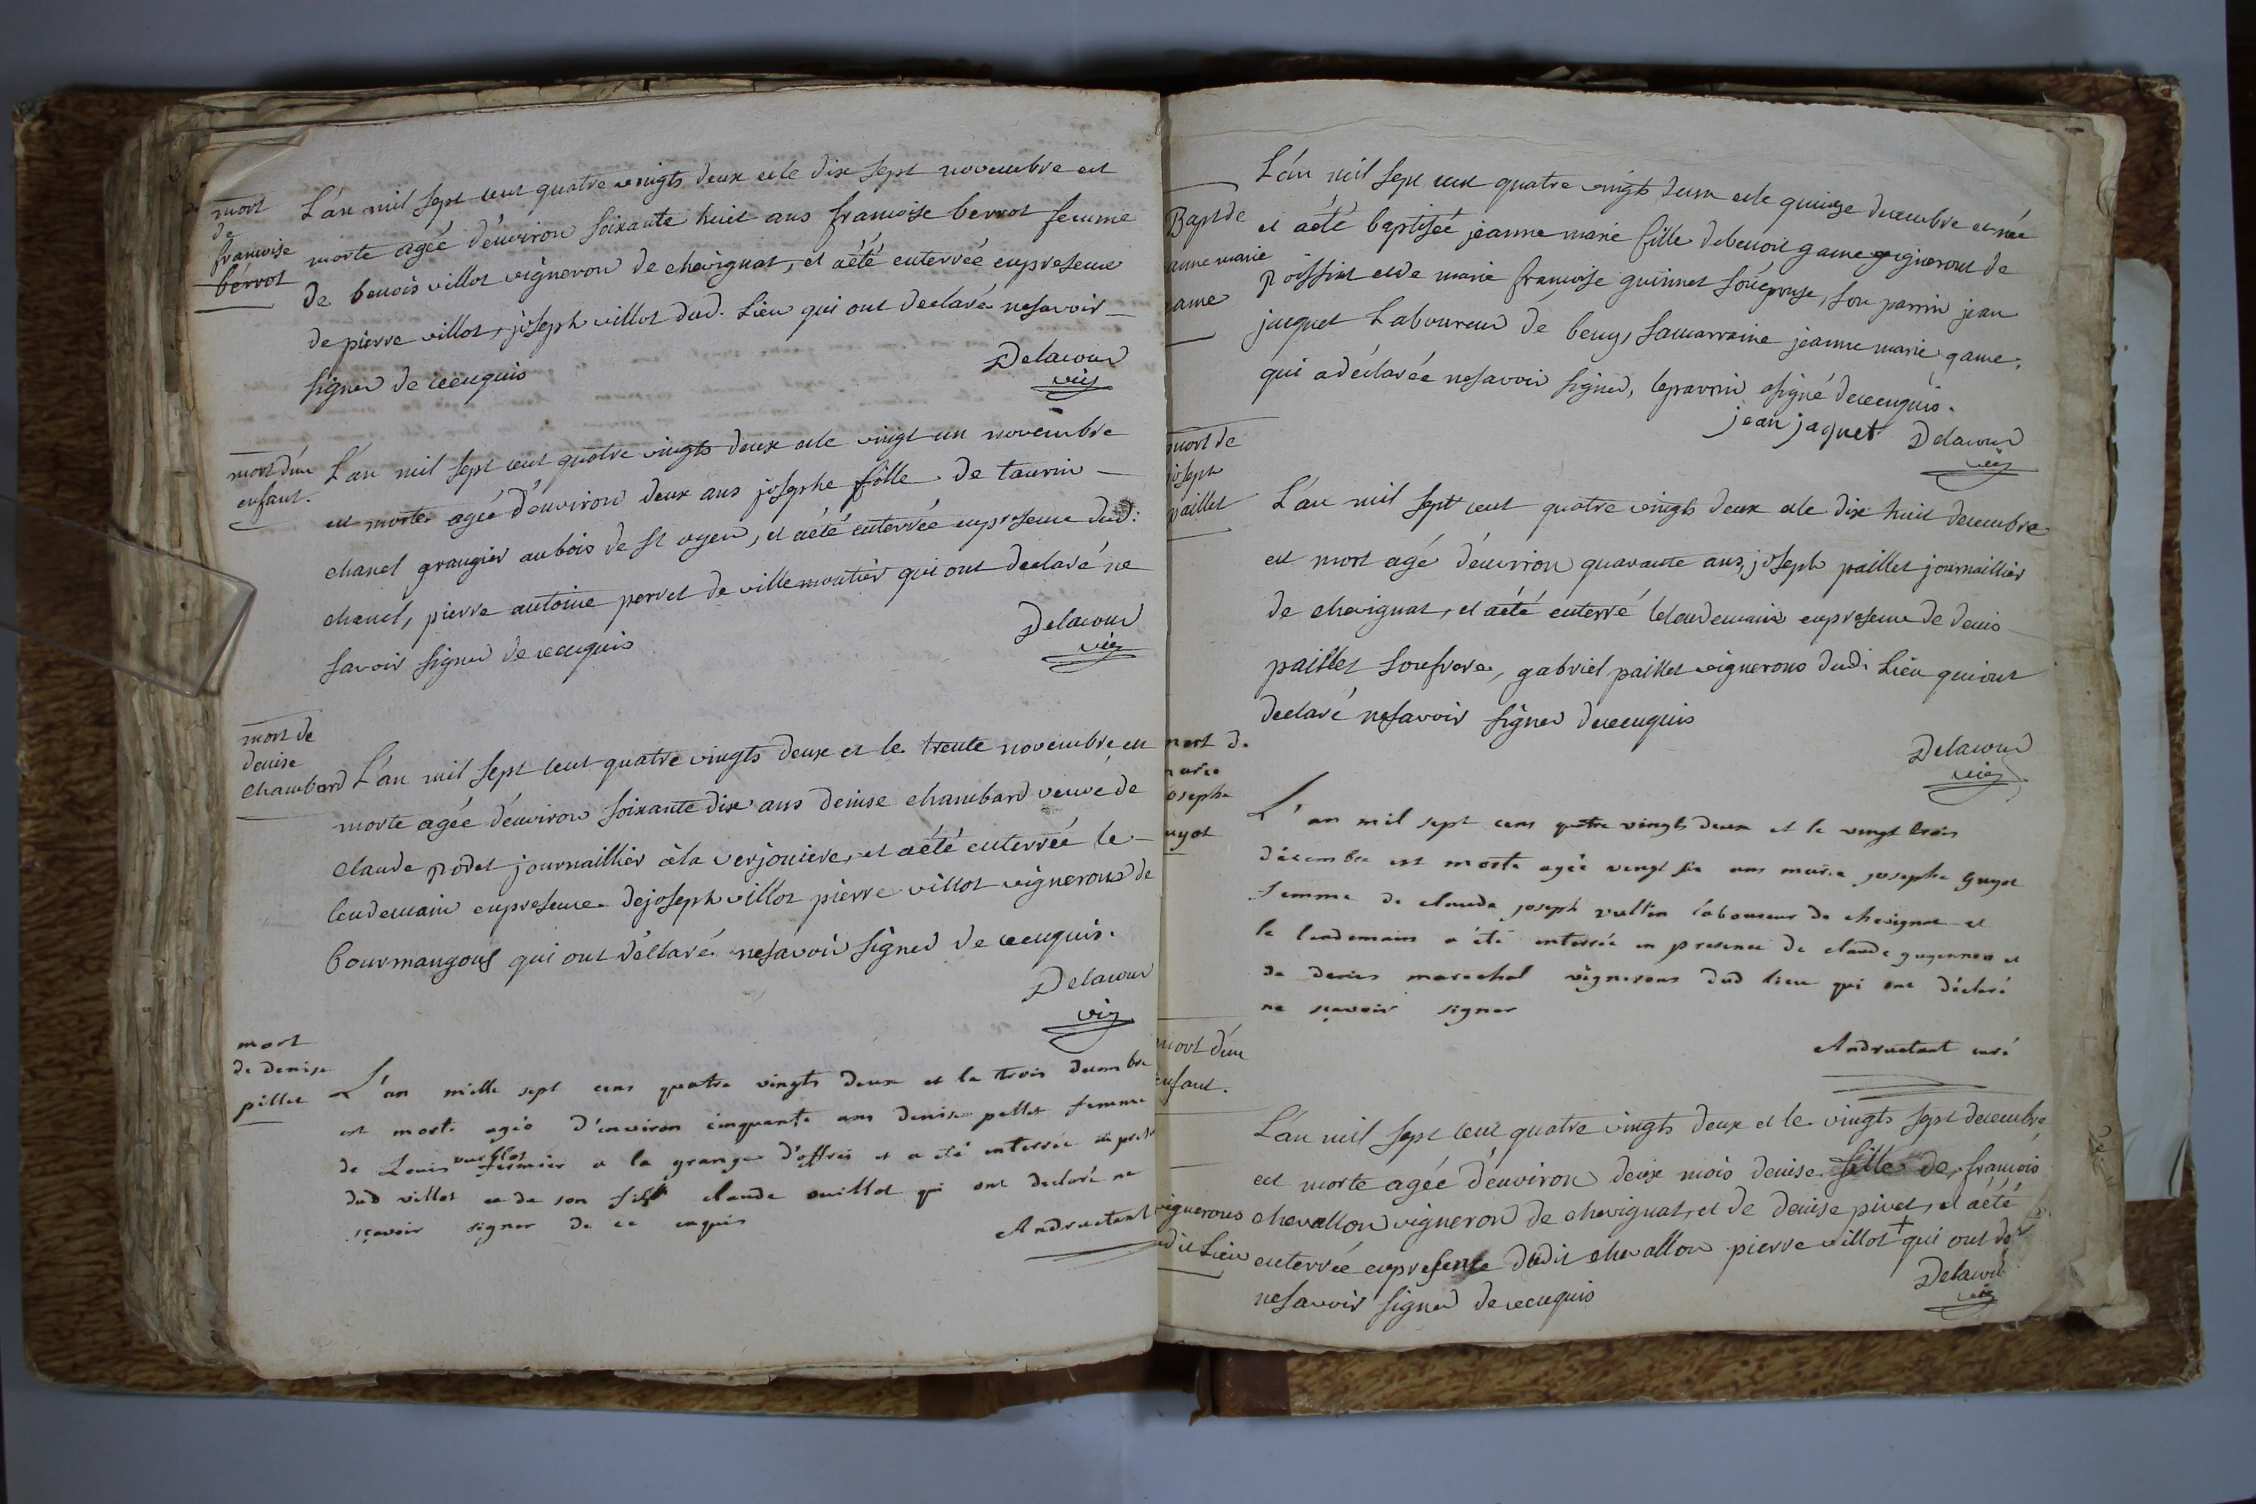 mort
de
francoise
berrot
L'an mil sept cent quatre vingts deux et le dix sept novembre est
morte agéé d'environ soixante huit ans francoise berrot femme
de benois villot vigneron de chevignat, et aété enterrée en presence
de pierre villot, joseph villot dud. Lieu qui ont declaré nesavoir
signer de ce enquis
Delacour
vic
mort d'un
enfant.
L'an mil sept cent quatre vingts deux et le vingt un novembre
est morte agéé d'environ deux ans josephe fille de taurin
chanel grangier au bois de St oyen, et aété enterréé en presence dud:
chanel, pierre antoine perret de villemoutier qui ont declaré ne
savoir signer de ce enquis
Delacour
vic
mort de
denise
chambard
L'an mil sept cent quatre vingts deux et le trente novembre est
morte agéé d'environ soixante dix ans denise chambard veuve de
claude podet journaillier à la verjoniere, et aété enterréé le
lendemain en presence de joseph villot pierre villot vignerons de
Courmangoux qui ont déclaré nesavoir signer de ce enquis.
Delacour
vic
mort
de denise
pillet
L'an mille sept cens quatre vingts deux et le trois decembre
est morte agéé d'environ cinquante ans denise pellet femme
de Louis fermier a la grange d'offres et a été enterrée en pres
dud villot et de son fils claude ouillot qui ont declaré ne
sçavoir signer de ce enquis
Andructant
Bapt de
anne marie
game
L'an mil sept cent quatre vingts deux et le quinze decembre est née
et aété baptiséé jeanne marie fille de benoit game vigneront de
Poissiat et de marie francoise guinnet son épouse, son parrin jean
jacquet Laboureur de beny, sa marraine jeanne marie game,
qui a déclaréé nesavoir signer, le parrin asigné de ce enquis.
jean jaquet Delacour
vic
mort de
joseph
paillet
L'an mil sept cent quatre vingts deux et le dix huit decembre
est mort agé d'environ quarante ans, joseph paillet journaillier
de chevignat, et aété enterré le lendemain en presence de denis
paillet son frere, gabriel paillet vignerons dudi Lieu qui ont
declaré nesavoir signer de ce enquis
Delacour
vic
mort de
marie
osephe
uyot
L'an mil sept cens quatre vingts deux et le vingt trois
décembre est morte agée vingt six ans marie josephe Guyot
femme de claude joseph vullin laboureur de chevignat et
le lendemain a été enterrée en presence de claude guyennon et
de denis marechal vignerons dud lieu qui ont déclaré
ne sçavoir signer
Andructant curé
mort d'un
enfant.
L'an mil sept cent quatre vingts deux et le vingts sept decembre
est morte agéé d'environ deux mois denise fille de françois
chevallon vigneron de chevignat, et de denise pivet, et aété
enterréé en presence dudit chevallon pierre villot + qui ont de
vignerons
udit Lieu
nesavoir signer de ce enquis
Delacour
vic